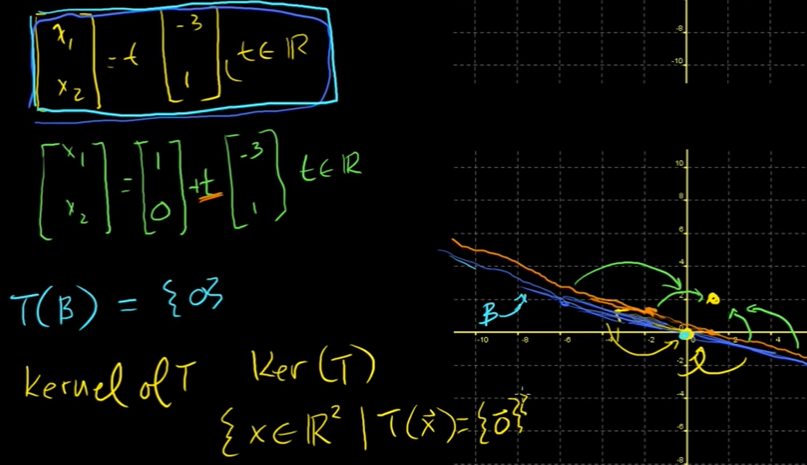 [x₁ x₂] = t [-3 1], t ∈ ℝ
[x₁ x₂] = [1 0] + t [-3 1] t ∈ ℝ
T(B) = {0}
B
Kernel of T Ker(T)
{x ∈ ℝ² | T(x⃗) = {0⃗}}
-8
-10
10
8
6
4
2
0
-10 -8 -6 -4 -2 2 4
-2
-4
-6
-8